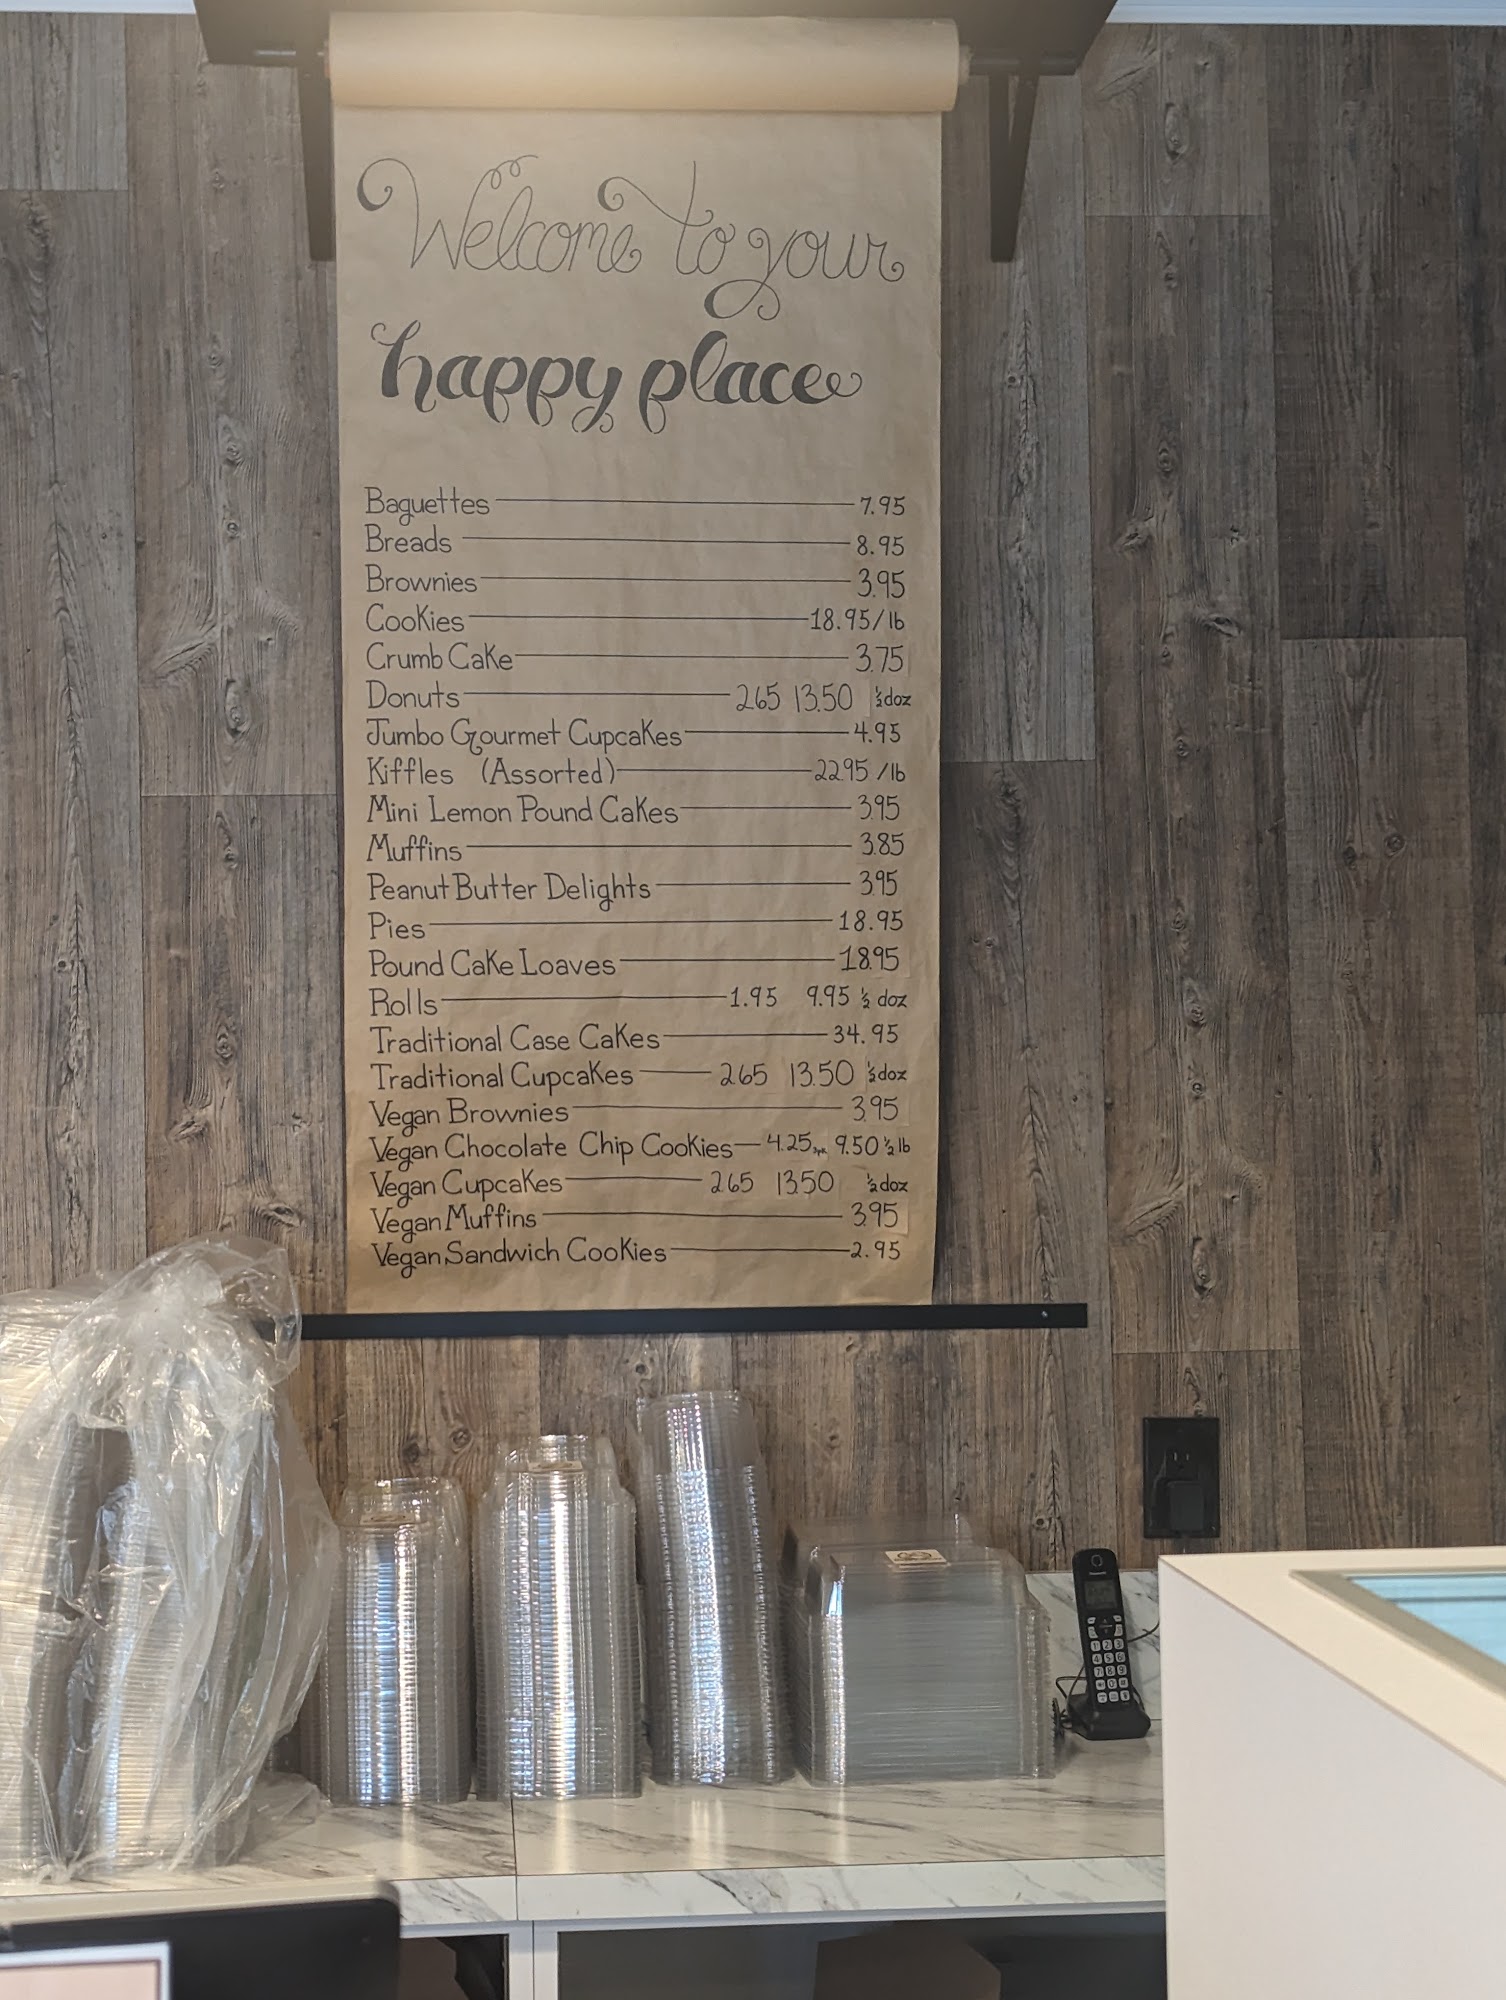 Welcome to your
happy place
Baguettes 7.95
Breads 8.95
Brownies 3.95
Cookies 18.95/lb
Crumb Cake 3.75
Donuts 265 13.50 ½doz
Jumbo Gourmet Cupcakes 4.95
Kiffles (Assorted) 2295 /lb
Mini Lemon Pound Cakes 395
Muffins 3.85
Peanut Butter Delights 395
Pies 18.95
Pound Cake Loaves 18.95
Rolls 1.95 9.95 ½ doz
Traditional Case Cakes 34.95
Traditional Cupcakes 265 13.50 ½doz
Vegan Brownies 3.95
Vegan Chocolate Chip Cookies 4.25 9.50 ½ lb
Vegan Cupcakes 265 1350 ½doz
Vegan Muffins 395
Vegan Sandwich Cookies 2.95